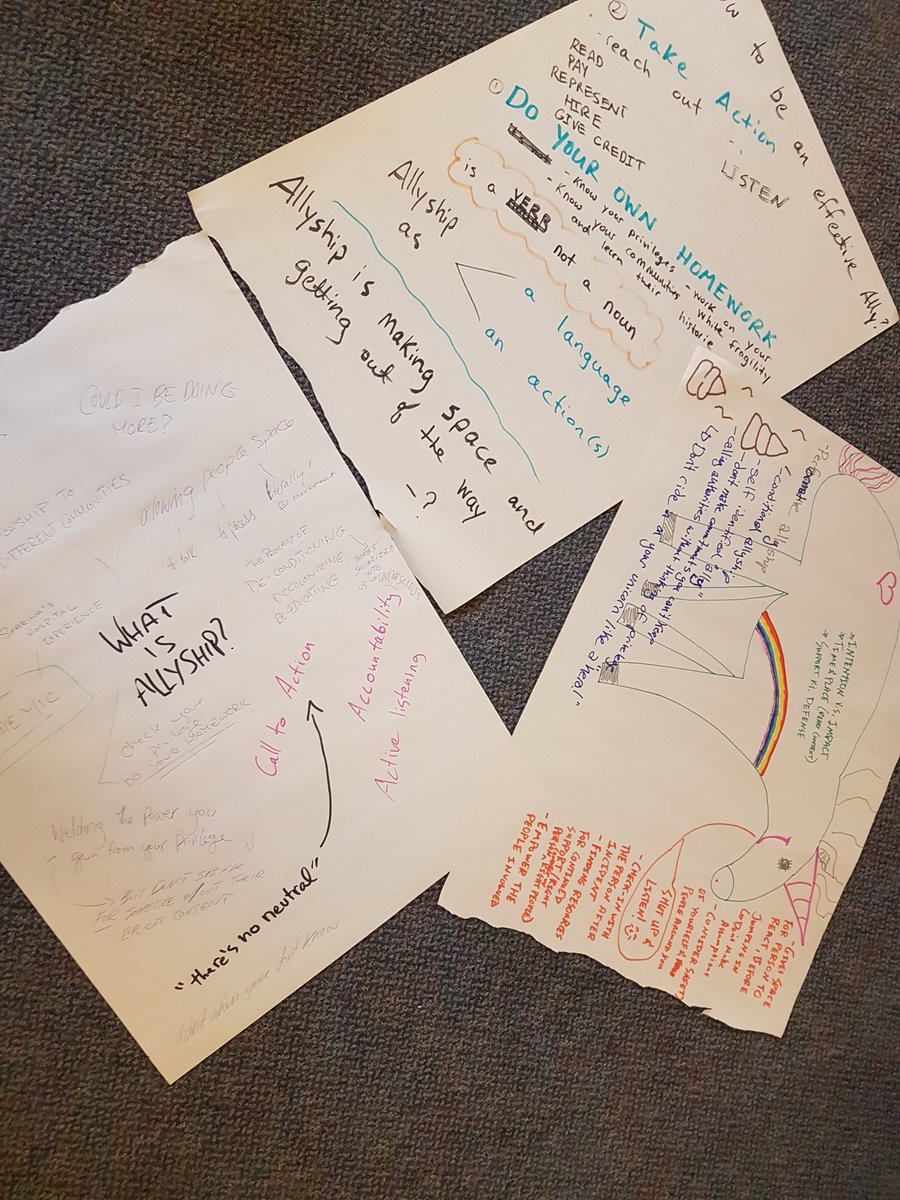 to be an effective Ally?
② Take Action
- reach out -
LISTEN
READ
PAY
REPRESENT
HIRE
GIVE CREDIT
① Do YOUR OWN HOMEWORK
- Know your privileges - work on your
white fragility
- Know your communities
and learn their
historie
Allyship
is a VERB not a noun
as
a language
an action(s)
Allyship is making space and
getting out of the way
-?
COULD I BE DOING
MORE?
TO
DIFFERENT COMMUNITIES
allowing people space
to talk
to process
literally!
THE PROCESS OF
DE-CONDITIONING
DECOLONIZING
RE-EDUCATING
THINGS
SOCIALIZED
INTO
US → UNCONSCIOUS
HOSPITAL
EXPERIENCE
WHAT
IS
ALLYSHIP?
MIC
check your
privilege
DO YOUR HOMEWORK
Call to Action
Accountability
Active listening
Welding the Power you
gain from your Privilege
→ BUT DON'T SPEAK
FOR SOMEONE W/OUT THEIR
EXPLICIT CONSENT
"there's no neutral"
Admit when you don't know
allyship
- conditional allyship
- Self identified "ally"
- don't make comitments you can't keep
- calling autorities without thinking of privilege
↳ Don't ride in at your unicorn like a hero!"
→ INTENTION VS. IMPACT
→ TIME & PLACE (READ CONTEXT)
→ SUPPORT VS. DEFENSE
- GIVE SPACE
FOR PERSON TO
REACT, BEFORE
JUMPING IN
- Don't Make
Assumptions
- CONSIDER SAFETY
OF YOURSELF &
PEOPLE AROUND you
SHUT UP &
LISTEN!
- CHECK-IN WITH
THE PERSON AFTER
INCIDENT
- FINDING RESOURCES
FOR CONTINUED
SUPPORT
- EMPOWER THE
PEOPLE INVOLVED